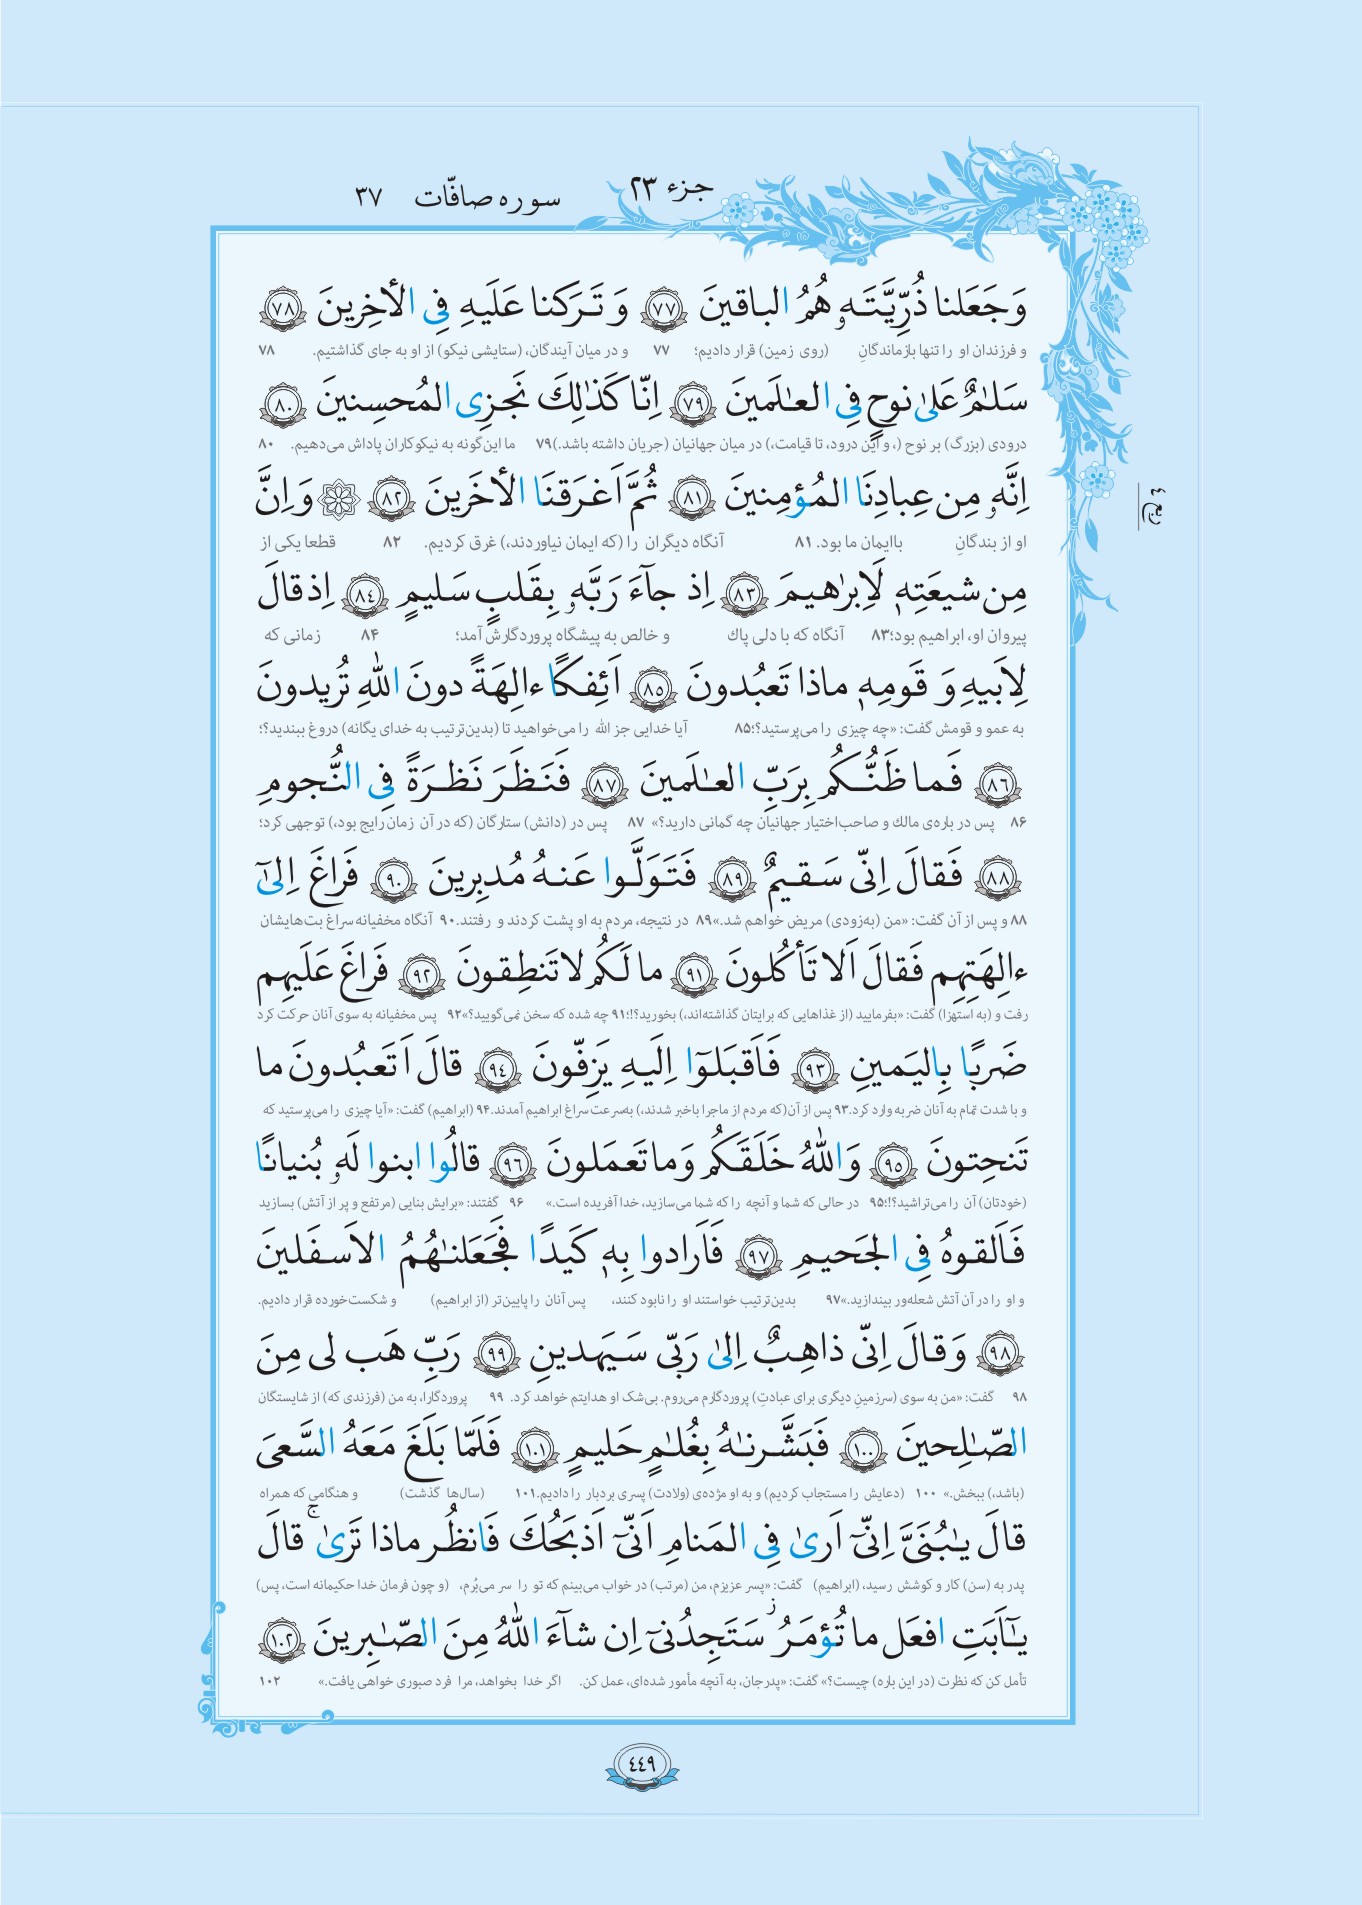 جزء ۲۳
سوره صافّات ۳۷
وَ جَعَلنا ذُرِّيَّتَهۥ هُمُ الباقينَ ﴿٧٧﴾ وَ تَرَكنا عَلَيهِ فِى الأخِرينَ ﴿٧٨﴾
و فرزندان او را تنها بازماندگانِ (روی زمین) قرار دادیم؛ ۷۷ و در میان آیندگان، (ستایشی نیکو) از او به جای گذاشتیم. ۷۸
سَلٰمٌ عَلىٰ نوحٍ فِى العٰلَمينَ ﴿٧٩﴾ اِنّا كَذٰلِكَ نَجزِى المُحسِنينَ ﴿٨٠﴾
درودی (بزرگ) بر نوح (، و این درود، تا قیامت،) در میان جهانیان (جریان داشته باشد.) ۷۹ ما این‌گونه به نیکوکاران پاداش می‌دهیم. ۸۰
اِنَّهۥ مِن عِبادِنَا المُؤمِنينَ ﴿٨١﴾ ثُمَّ اَغرَقنَا الأخَرينَ ﴿٨٢﴾ وَ اِنَّ
او از بندگانِ باایمان ما بود. ۸۱ آنگاه دیگران را (که ایمان نیاوردند،) غرق کردیم. ۸۲ قطعا یکی از
ربع ٤
مِن شيعَتِهٖ لَاِبرٰهيمَ ﴿٨٣﴾ اِذ جآءَ رَبَّهۥ بِقَلبٍ سَليمٍ ﴿٨٤﴾ اِذ قالَ
پیروان او، ابراهیم بود؛ ۸۳ آنگاه که با دلی پاك و خالص به پیشگاه پروردگارش آمد؛ ۸۴ زمانی که
لِاَبيهِ وَ قَومِهٖ ماذا تَعبُدونَ ﴿٨٥﴾ اَئِفكًا ءالِهَةً دونَ اللهِ تُريدونَ
به عمو و قومش گفت: «چه چیزی را می‌پرستید؟؛ ۸۵ آیا خدایی جز الله را می‌خواهید تا (بدین‌ترتیب به خدای یگانه) دروغ ببندید؟؛
﴿٨٦﴾ فَما ظَنُّكُم بِرَبِّ العٰلَمينَ ﴿٨٧﴾ فَنَظَرَ نَظرَةً فِى النُّجومِ
۸۶ پس در باره‌ی مالك و صاحب‌اختیار جهانیان چه گمانی دارید؟» ۸۷ پس در (دانش) ستارگان (که در آن زمان رایج بود،) توجهی کرد؛
﴿٨٨﴾ فَقالَ اِنّى سَقيمٌ ﴿٨٩﴾ فَتَوَلَّوا عَنهُ مُدبِرينَ ﴿٩٠﴾ فَراغَ اِلىٰٓ
۸۸ و پس از آن گفت: «من (به‌زودی) مریض خواهم شد.» ۸۹ در نتیجه، مردم به او پشت کردند و رفتند. ۹۰ آنگاه مخفیانه سراغ بت‌هایشان
ءالِهَتِهِم فَقالَ اَلا تَأكُلونَ ﴿٩١﴾ ما لَكُم لا تَنطِقونَ ﴿٩٢﴾ فَراغَ عَلَيهِم
رفت و (به استهزا) گفت: «بفرمایید (از غذاهایی که برایتان گذاشته‌اند،) بخورید؟!؛ ۹۱ چه شده که سخن نمی‌گویید؟» ۹۲ پس مخفیانه به سوی آنان حرکت کرد
ضَربًا بِاليَمينِ ﴿٩٣﴾ فَاَقبَلوٓا اِلَيهِ يَزِفّونَ ﴿٩٤﴾ قالَ اَتَعبُدونَ ما
و با شدت تمام به آنان ضربه وارد کرد. ۹۳ پس از آن(که مردم از ماجرا باخبر شدند،) به‌سرعت سراغ ابراهیم آمدند. ۹۴ (ابراهیم) گفت: «آیا چیزی را می‌پرستید که
تَنحِتونَ ﴿٩٥﴾ وَاللهُ خَلَقَكُم وَ ما تَعمَلونَ ﴿٩٦﴾ قالُوا ابنوا لَهۥ بُنيانًا
(خودتان) آن را می‌تراشید؟!؛ ۹۵ در حالی که شما و آنچه را که شما می‌سازید، خدا آفریده است.» ۹۶ گفتند: «برایش بنایی (مرتفع و پر از آتش) بسازید
فَاَلقوهُ فِى الجَحيمِ ﴿٩٧﴾ فَاَرادوا بِهٖ كَيدًا فَجَعَلنٰهُمُ الاَسفَلينَ
و او را در آن آتش شعله‌ور بیندازید.» ۹۷ بدین‌ترتیب خواستند او را نابود کنند، پس آنان را پایین‌تر (از ابراهیم) و شکست‌خورده قرار دادیم.
﴿٩٨﴾ وَ قالَ اِنّى ذاهِبٌ اِلىٰ رَبّى سَيَهدينِ ﴿٩٩﴾ رَبِّ هَب لى مِنَ
۹۸ گفت: «من به سوی (سرزمینِ دیگری برای عبادتِ) پروردگارم می‌روم. بی‌شک او هدایتم خواهد کرد. ۹۹ پروردگارا، به من (فرزندی که) از شایستگان
الصّٰلِحينَ ﴿١٠٠﴾ فَبَشَّرنٰهُ بِغُلٰمٍ حَليمٍ ﴿١٠١﴾ فَلَمّا بَلَغَ مَعَهُ السَّعىَ
(باشد،) ببخش.» ۱۰۰ (دعایش را مستجاب کردیم) و به او مژده‌ی (ولادت) پسری بردبار را دادیم. ۱۰۱ (سال‌ها گذشت) و هنگامی که همراه
قالَ يٰبُنَىَّ اِنّىٓ اَرىٰ فِى المَنامِ اَنّىٓ اَذبَحُكَ فَانظُر ماذا تَرىٰ ۚ قالَ
پدر به (سن) کار و کوشش رسید، (ابراهیم) گفت: «پسر عزیزم، من (مرتب) در خواب می‌بینم که تو را سر می‌بُرم، (و چون فرمان خدا حکیمانه است، پس)
يٰٓاَبَتِ افعَل ما تُؤمَرُ ز سَتَجِدُنىٓ اِن شآءَ اللهُ مِنَ الصّٰبِرينَ ﴿١٠٢﴾
تأمل کن که نظرت (در این باره) چیست؟» گفت: «پدرجان، به آنچه مأمور شده‌ای، عمل کن. اگر خدا بخواهد، مرا فرد صبوری خواهی یافت.» ۱۰۲
٤٤٩